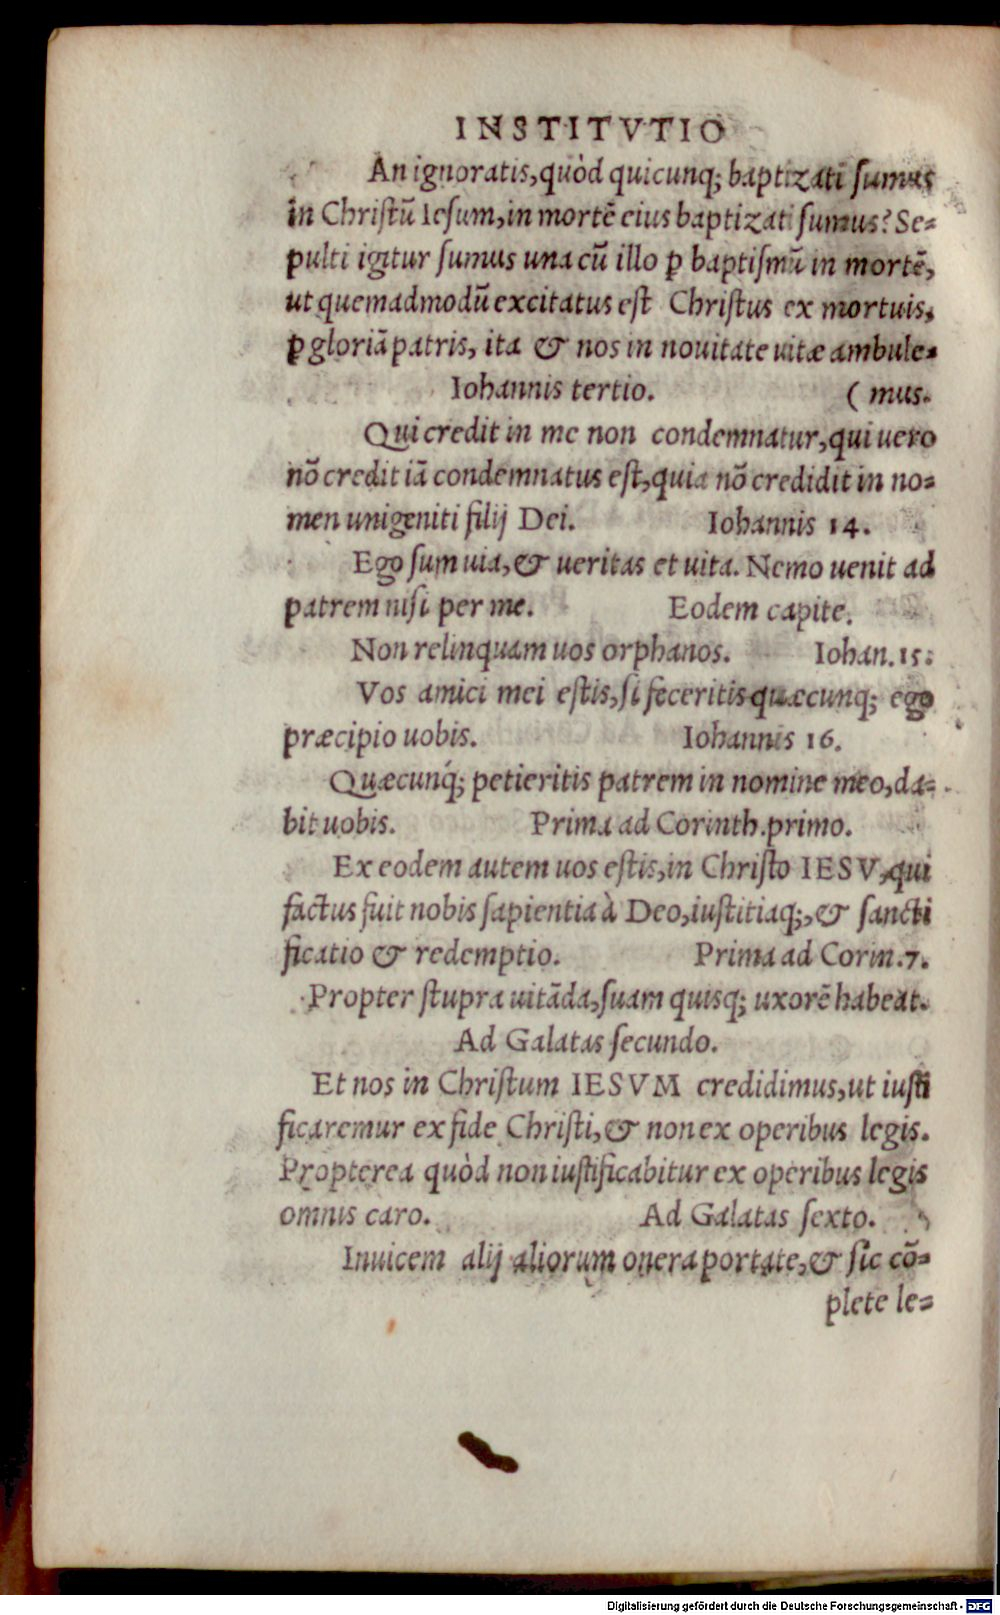 INSTITVTIO
An ignoratis, quòd quicunq; baptizati sumus
in Christũ Iesum, in mortẽ eius baptizati sumus? Se-
pulti igitur sumus una cũ illo ꝑ baptismũ in mortẽ,
ut quemadmodũ excitatus est Christus ex mortuis,
ꝑ gloriã patris, ita & nos in nouitate uitæ ambule-
Iohannis tertio. ( mus.
Qui credit in me non condemnatur, qui uero
nõ credit iã condemnatus est, quia nõ credidit in no-
men unigeniti filij Dei. Iohannis 14.
Ego sum uia, & ueritas et uita. Nemo uenit ad
patrem nisi per me. Eodem capite.
Non relinquam uos orphanos. Iohan. 15.
Vos amici mei estis, si feceritis quæcunq; ego
præcipio uobis. Iohannis 16.
Quæcunq́; petieritis patrem in nomine meo, da-
bit uobis. Prima ad Corinth. primo.
Ex eodem autem uos estis, in Christo IESV, qui
factus fuit nobis sapientia à Deo, iustitiaq;, & sancti
ficatio & redemptio. Prima ad Corin. 7.
Propter stupra uitãda, suam quisq; uxorẽ habeat.
Ad Galatas secundo.
Et nos in Christum IESVM credidimus, ut iusti
ficaremur ex fide Christi, & non ex operibus legis.
Propterea quòd non iustificabitur ex operibus legis
omnis caro. Ad Galatas sexto.
Inuicem alij aliorum onera portate, & sic cõ-
plete le-
Digitalisierung gefördert durch die Deutsche Forschungsgemeinschaft - DFG